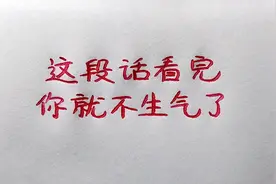 这段话看完
你就不生气了